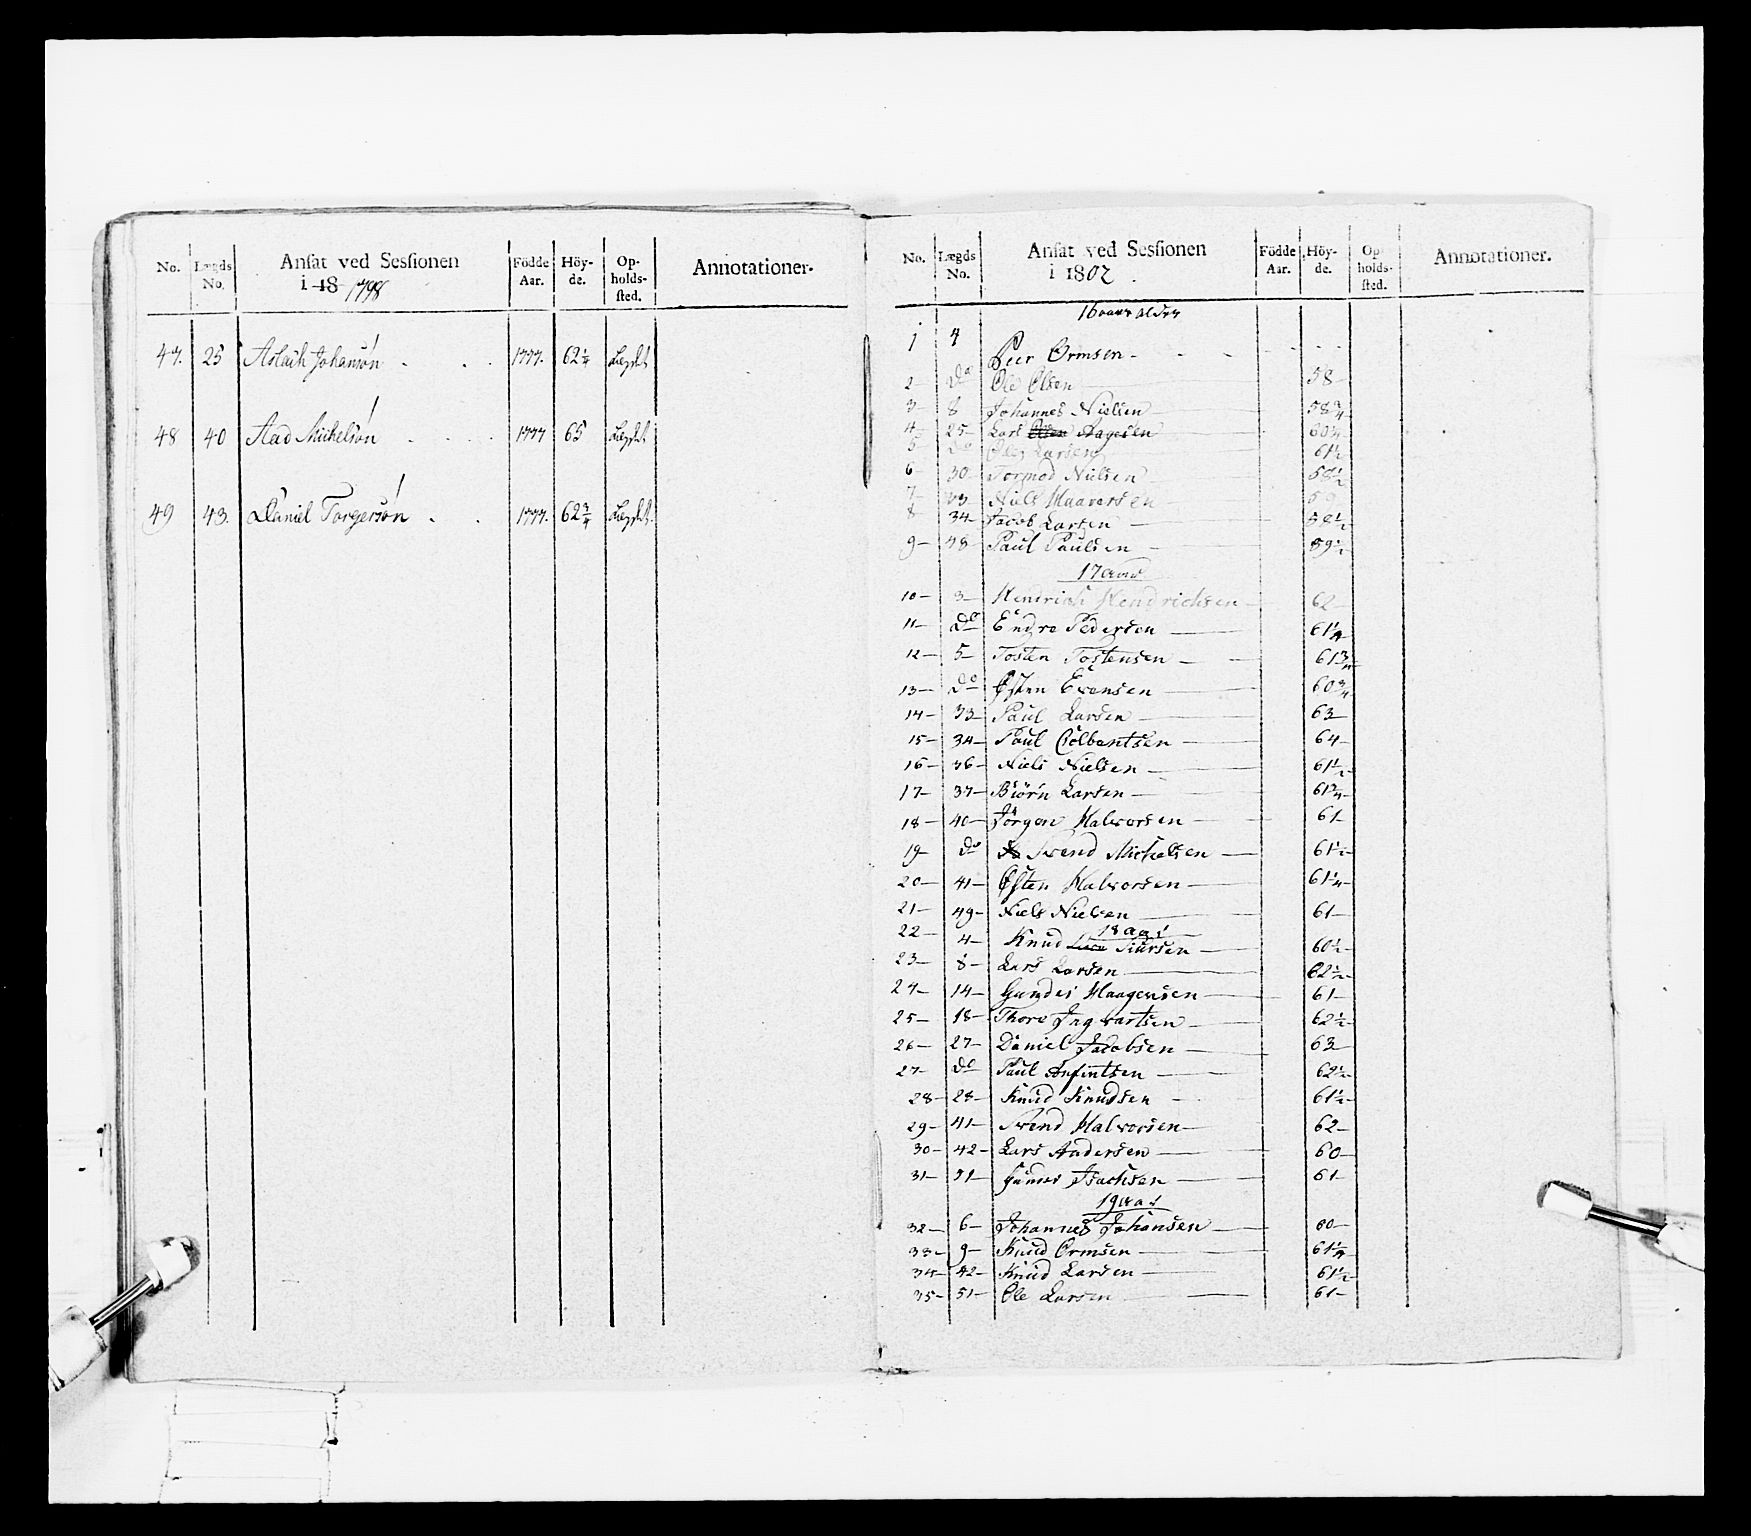 No. Lægds No. Ansat ved Sessionen i 18 1798 Födde Aar. Höyde. Opholdssted. Annotationer.
47. 25 Aslach Johansøn 1777. 62 1/4 Lægdet
48 40 Aad Michelsøn 1777 65 Lægdet
49 43. Daniel Torgersøn 1777. 62 3/4 Lægdet
No. Lægds No. Ansat ved Sessionen i 1802 Födde Aar. Höyde. Opholdssted. Annotationer.
16 aars alder
1 4 Peer Ormsen
2 Do Ole Olsen 58
3 8 Johannes Nielsen 58 3/4
4 25 Lars Aagesen 60 3/4
5 Do Larsen 61 1/2
6 30 Tormod Nielsen 58 1/2
7 33 Niels Haaversen 59
8 34 Jacob Larsen 58 1/2
9 48 Paul Paulsen 59 1/2
17 aars
10 3 Hendrich Hendrichsen 62
11 Do Endre Pedersen 61 1/4
12 5 Tosten Tostensen 61 3/4
13 Do Østen Evensen 60 3/4
14 33 Paul Larsen 63
15 34 Paul Colbentsen 64
16 36 Niels Nielsen 61 1/2
17 37 Biørn Larsen 61 3/4
18 40 Jörgen Halvorsen 61
19 Do Svend Michelsen 61 1/2
20 41 Østen Halvorsen 61 1/4
21 49 Niels Nielsen 61
18 aars
22 4 Knud Siursen 60 1/2
23 8 Lars Larsen 62 1/2
24 14 Haagensen 61
25 18 Thore Ingvartsen 62 1/2
26 27 Daniel Jacobsen 63
27 Do Paul Anfintsen 62 1/2
28 28 Knud Knudsen 61 1/2
29 41 Svend Halvorsen 62
30 42 Lars Andersen 60
31 51 Gunder Isachsen 61
19 aars
32 6 Johannes Johansen 60
33 9 Knud Ormsen 61 1/4
34 42 Knud Larsen 61 1/2
35 51 Ole Larsen 61